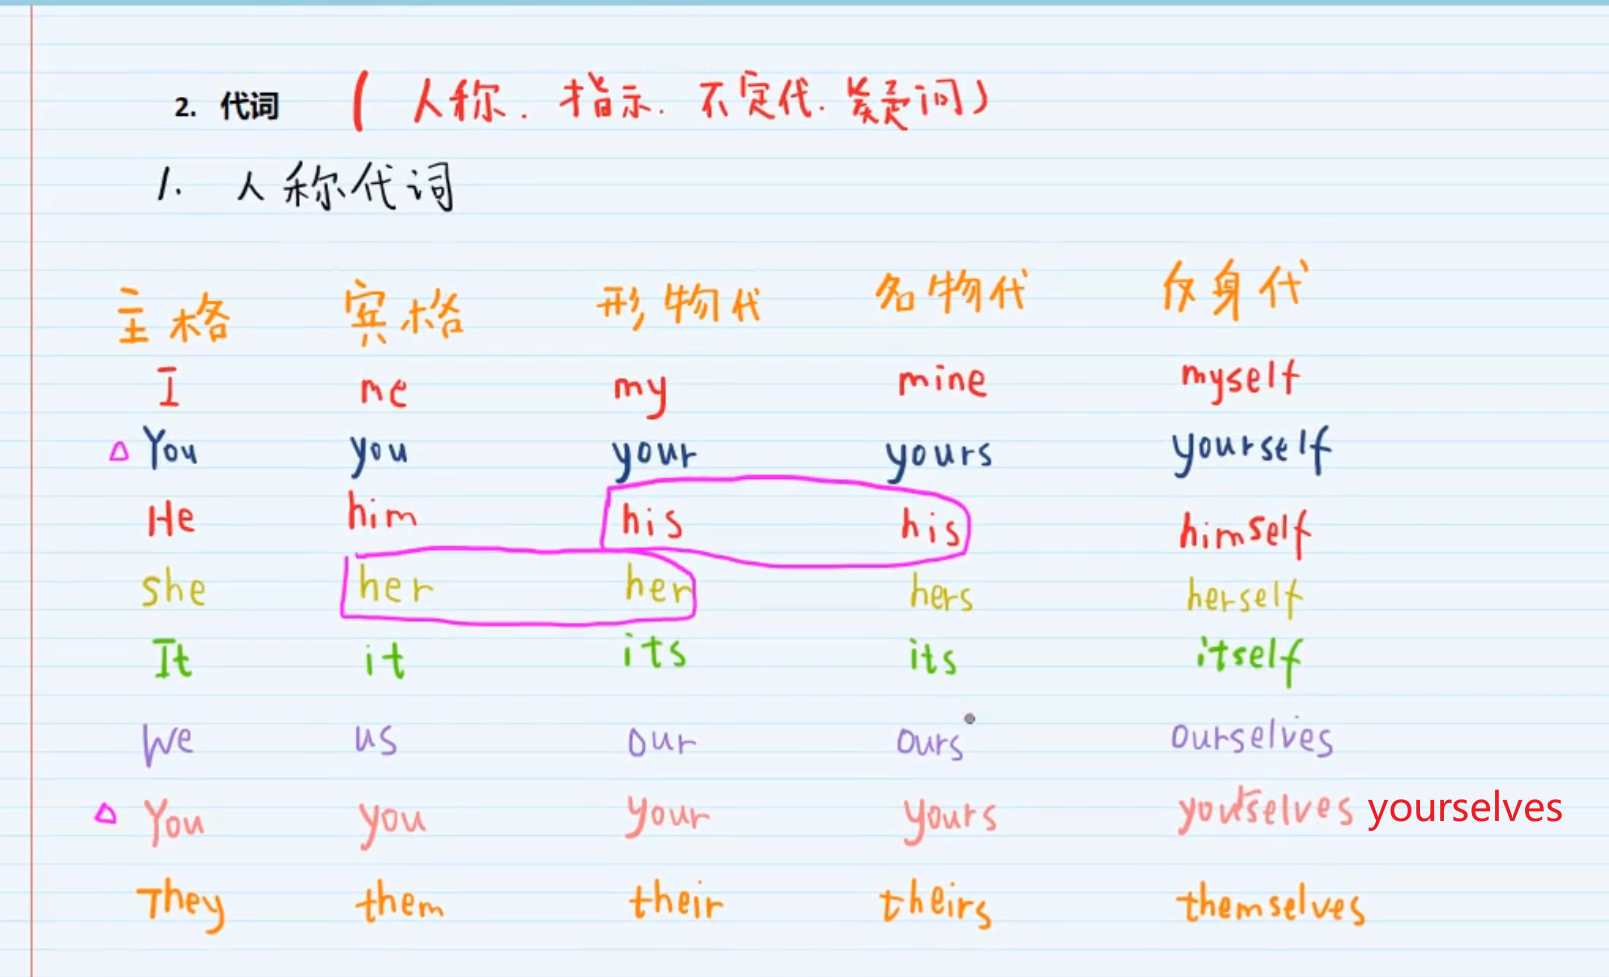 2. 代词 ( 人称. 指示. 不定代. 疑问)
1. 人称代词
主格 宾格 形物代 名物代 反身代
I me my mine myself
You you your yours yourself
He him his his himself
she her her hers herself
It it its its itself
We us our ours ourselves
You you your yours yourselves yourselves
They them their theirs themselves